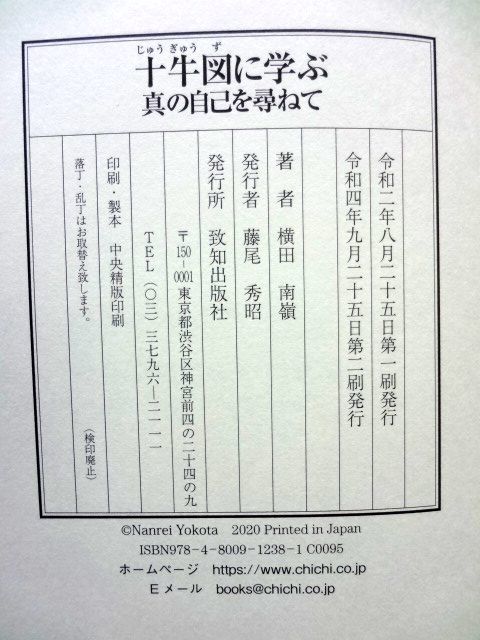 じゅうぎゅう ず
十牛図に学ぶ
真の自己を尋ねて
令和二年八月二十五日第一刷発行
令和四年九月二十五日第二刷発行
著者 横田 南嶺
発行者 藤尾 秀昭
発行所 致知出版社
〒150-0001 東京都渋谷区神宮前四の二十四の九
TEL(〇三)三七九六―二一一一
印刷・製本 中央精版印刷
落丁・乱丁はお取替え致します。
(検印廃止)
©Nanrei Yokota 2020 Printed in Japan
ISBN978-4-8009-1238-1 C0095
ホームページ https://www.chichi.co.jp
Eメール books@chichi.co.jp